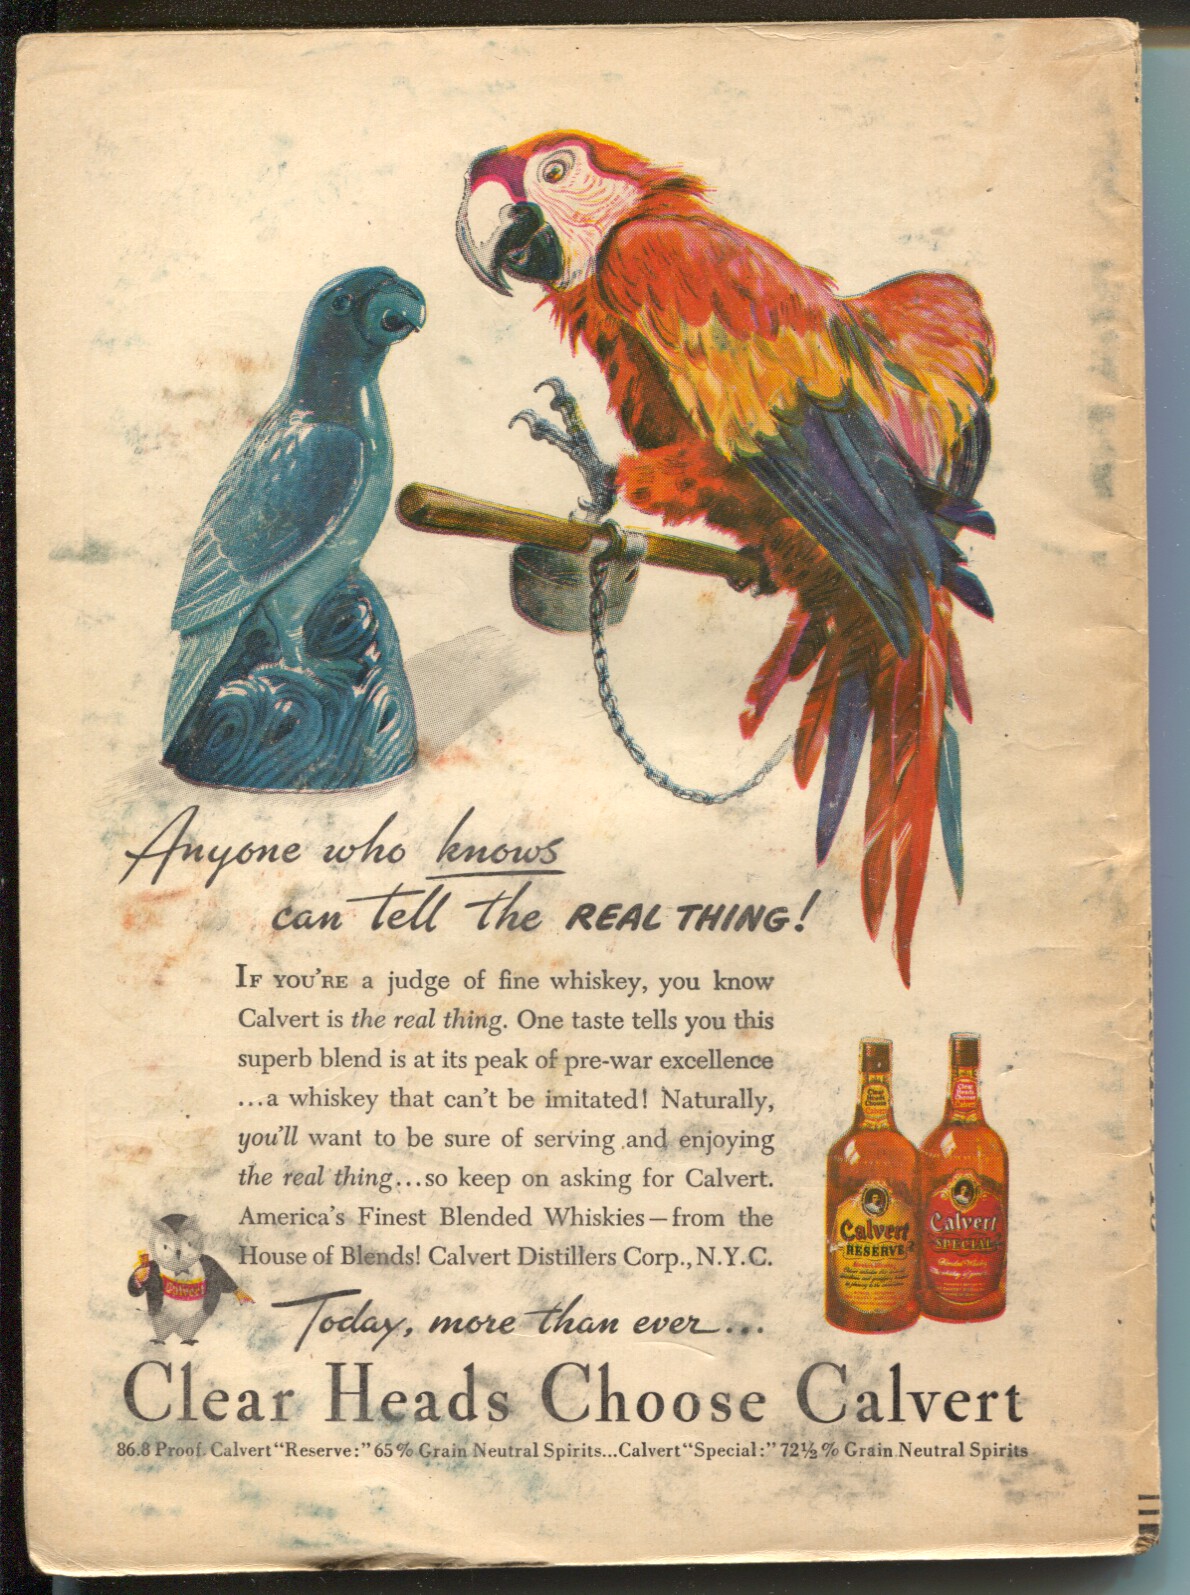 Anyone who knows
can tell the REAL THING!
IF YOU'RE a judge of fine whiskey, you know
Calvert is the real thing. One taste tells you this
superb blend is at its peak of pre-war excellence
...a whiskey that can't be imitated! Naturally,
you'll want to be sure of serving and enjoying
the real thing...so keep on asking for Calvert.
America's Finest Blended Whiskies—from the
House of Blends! Calvert Distillers Corp., N.Y.C.
Calvert
RESERVE
Calvert
SPECIAL
Calvert
Today, more than ever...
Clear Heads Choose Calvert
86.8 Proof. Calvert "Reserve:" 65% Grain Neutral Spirits...Calvert "Special:" 72½% Grain Neutral Spirits